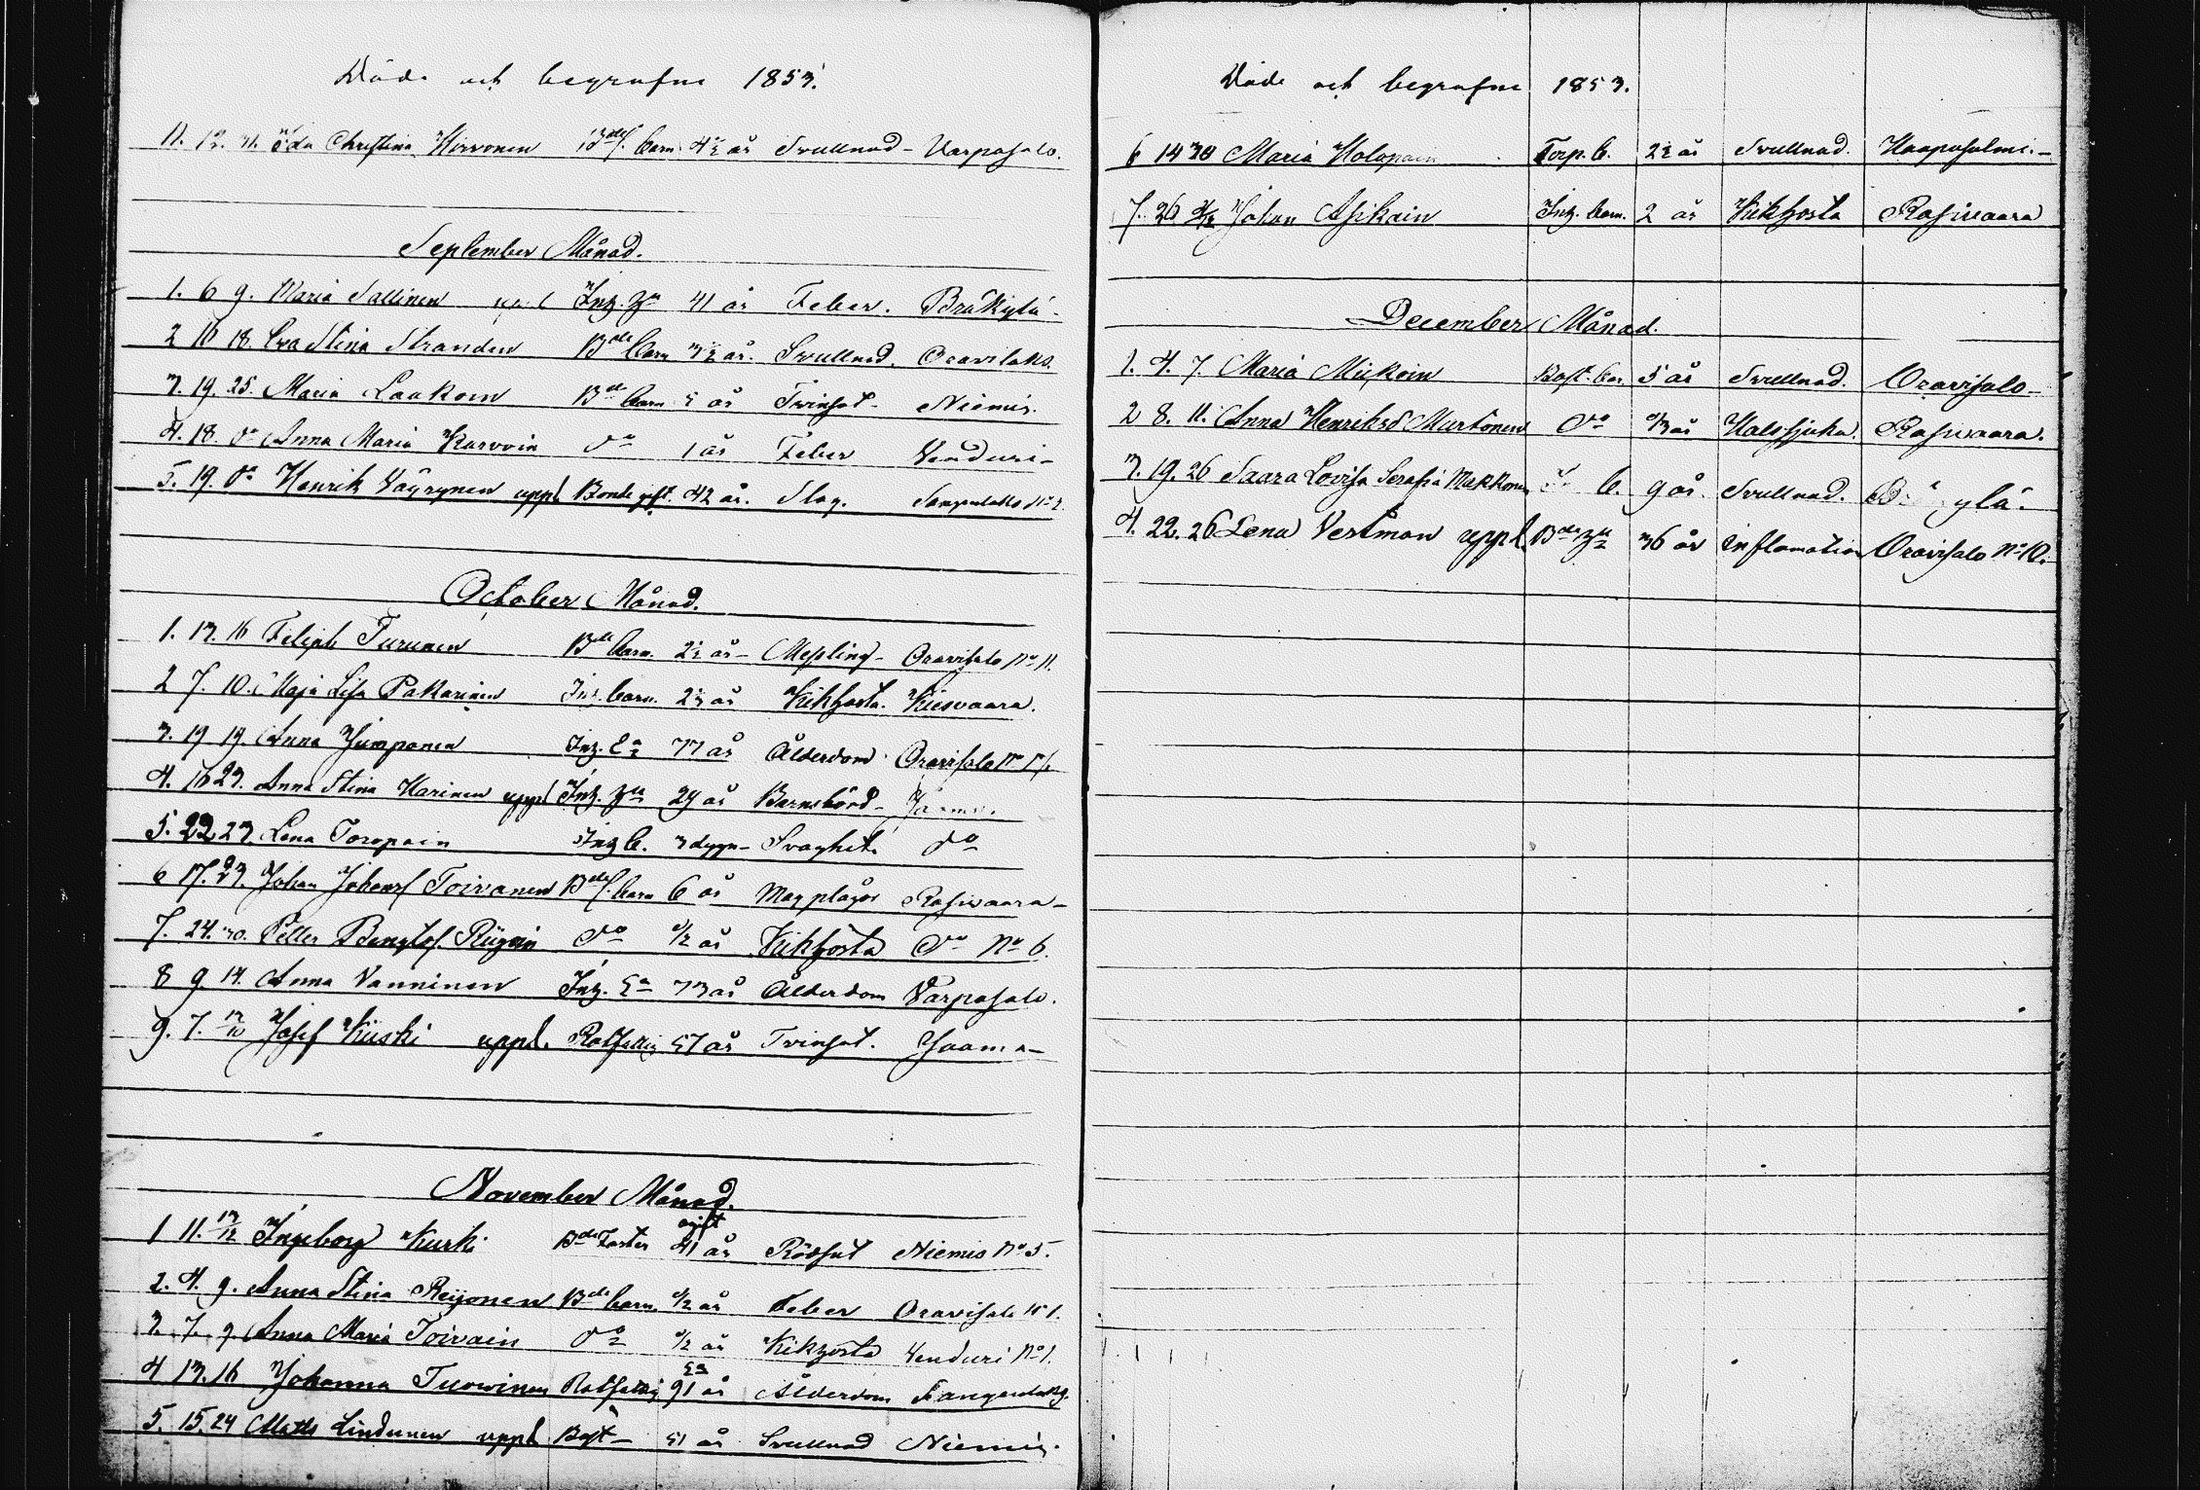 Döde och begrafne 1853.
11. 12. 31. Eda Christina Hirvonen Bdes. barn 4½ år Svullnad - Varpasalo.
September Månad.
1. 6 9. Maria Sallinen Inh. Hu 41 år Feber. Bråkylä.
2 16 18. Eva Stina Strandén Bde barn 3½ år. Svullnad. Oravilaks.
3. 19. 25. Maria Laakoin Bde barn 5 år Tvinsot - Niemis.
4. 18. do Anna Maria Karvoin do 1 år Feber Venduri -
5. 19. do Henrik Väyrynen uppl Bonde gift. 42 år. Slag. Sangenlaks No 2.
October Månad.
1. 13. 16 Feliph Turunen Bde barn. 2½ år - Messling - Oravisalo No 11.
2 7. 10. Maja Lisa Pakarinen Inh. barn. 2½ år Kikhosta. Kiesvaara.
3. 19 19. Anna Jümponen Inh. Ea 77 år Ålderdom Oravisalo No
4. 16 23. Anna Stina Harinen uppl Inh. Hu 29 år Barnsbörd - Jaama.
5. 22 23. Lena Toropain Inh b. 3 dygn - Svaghet. do
6 17. 23. Johan Johansf Toivanen Bdes. barn 6 år Magplågor Rasivaara -
7. 24. 30. Petter Bengtsf. Riigoin do ½ år Kikhosta do No 6.
8 9 14. Anna Vanninen Inh. Ea 73 år Ålderdom Varpasalo.
9. 7. 13/10 Josef Kiiski uppl. Rotfattig 57 år Tvinsot. Jaama -
November Månad.
1 11. 13/12 Ingeborg Kurki Bde Faster ogift 41 år Rödsot Niemis No 5.
2. 4. 9. Anna Stina Reijonen Bde barn. ½ år Feber Oravisalo No 1.
3. 7. 9 Anna Maria Toivain do ½ år Kikhosta Venduri No 1.
4 13. 16 Johanna Tuovinen Rotfattig Ea 91 år Ålderdom Sangenlaks.
5. 15. 24 Matts Lindunen uppl Bgft - 51 år Svullnad Niemis.
Döde och begrafne 1853.
6 14 30 Maria Holopain Torp. b. 2½ år Svullnad. Haapasalmi. -
7. 26 4/12 Johan Asikain Inh. barn. 2 år Kikhosta Rasivaara
December Månad.
1. 4. 7. Maria Miikoin Bost. bar. 5 år Svullnad. Oravisalo -
2 8. 11. Anna Henriksd Murtonen do ⅓ år Halssjuka. Rasivaara.
3. 19. 26 Saara Lovisa Serafia Makkonen b. 9 år. Svullnad.
4. 22. 26 Lena Vestman uppl. Bde Hu 36 år inflamation Oravisalo No 10.